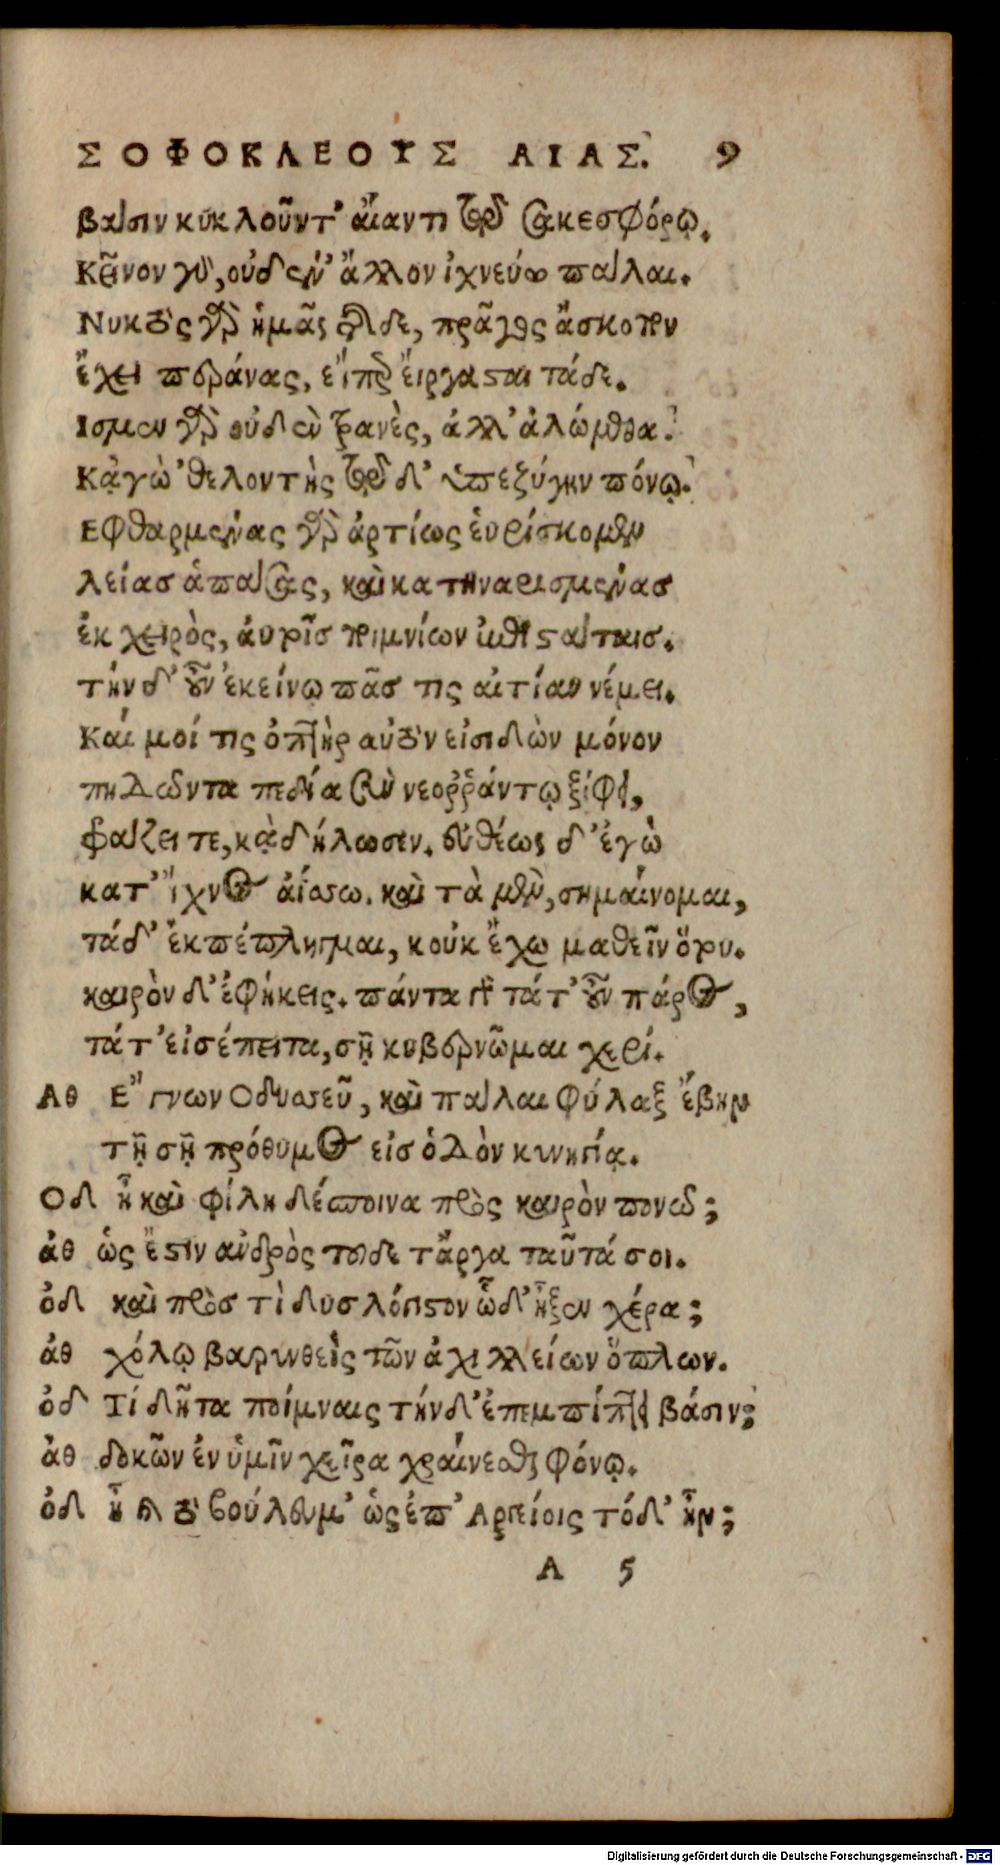 ΣΟΦΟΚΛΕΟΥΣ ΑΙΑΣ. 9
βάσιν κυκλοῦντ' αἴαντι τῷ σακεσφόρῳ.
Κεῖνον γὰρ, οὐδέν' ἄλλον ἰχνεύω πάλαι.
Νυκτὸς γὰρ ἡμᾶς τῆσδε, πρᾶγος ἄσκοπον
ἔχει περάνας, εἴπερ εἴργασται τάδε.
Ισμεν γὰρ οὐδὲν τρανὲς, ἀλλ' ἀλώμεθα.
Κᾀγὼ 'θελοντὴς τῷδ' ὑπεζύγην πόνῳ.
Εφθαρμένας γὰρ ἀρτίως ἑυρίσκομεν
λείας ἁπάσας, καὶ κατηναρισμένας
ἐκ χειρὸς, ἀυτοῖς ποιμνίων ἐπιστάταις.
τήνδ' οὖν ἐκείνῳ πᾶς τις αἰτίαν νέμει.
Και μοί τις ὀπτὴρ αὐτὸν εἰσιδὼν μόνον
πηδῶντα πεδία σὺν νεοῤῥάντῳ ξίφει,
φράζει τε, κᾀδήλωσεν. εὐθέως δ' ἐγὼ
κατ' ἴχνος ἀΐσσω. καὶ τὰ μὲν, σημαίνομαι,
τάδ' ἐκπέπληγμαι, κοὐκ ἔχω μαθεῖν ὅτου.
καιρὸν δ' ἐφήκεις. πάντα γὰρ τάτ' οὖν πάρος,
τάτ' εἰσέπειτα, σῇ κυβερνῶμαι χερί.
Αθ Ἔγνων Οδυσσεῦ, καὶ πάλαι φύλαξ ἔβην
τῇ σῇ πρόθυμος εἰς ὁδὸν κυνηγίᾳ.
Οδ ἦ καὶ φίλη δέσποινα πρὸς καιρὸν πονῶ;
ἀθ ὡς ἔστιν ἀνδρὸς τοῦδε τἄργα ταῦτά σοι.
ὀδ καὶ πρὸς τὶ δυσλόγιστον ὧδ' ἦξεν χέρα;
ἀθ χόλῳ βαρυνθεὶς τῶν ἀχιλλείων ὅπλων.
ὀδ Τί δῆτα ποίμναις τήνδ' ἐπεμπίπτει βάσιν;
ἀθ δοκῶν ἐν ὑμῖν χεῖρα χραίνεσθαι φόνῳ.
ὀδ ἦ καὶ τὸ βούλευμ' ὡς ἐπ' Αργείοις τόδ' ἦν;
Α 5
Digitalisierung gefördert durch die Deutsche Forschungsgemeinschaft - DFG